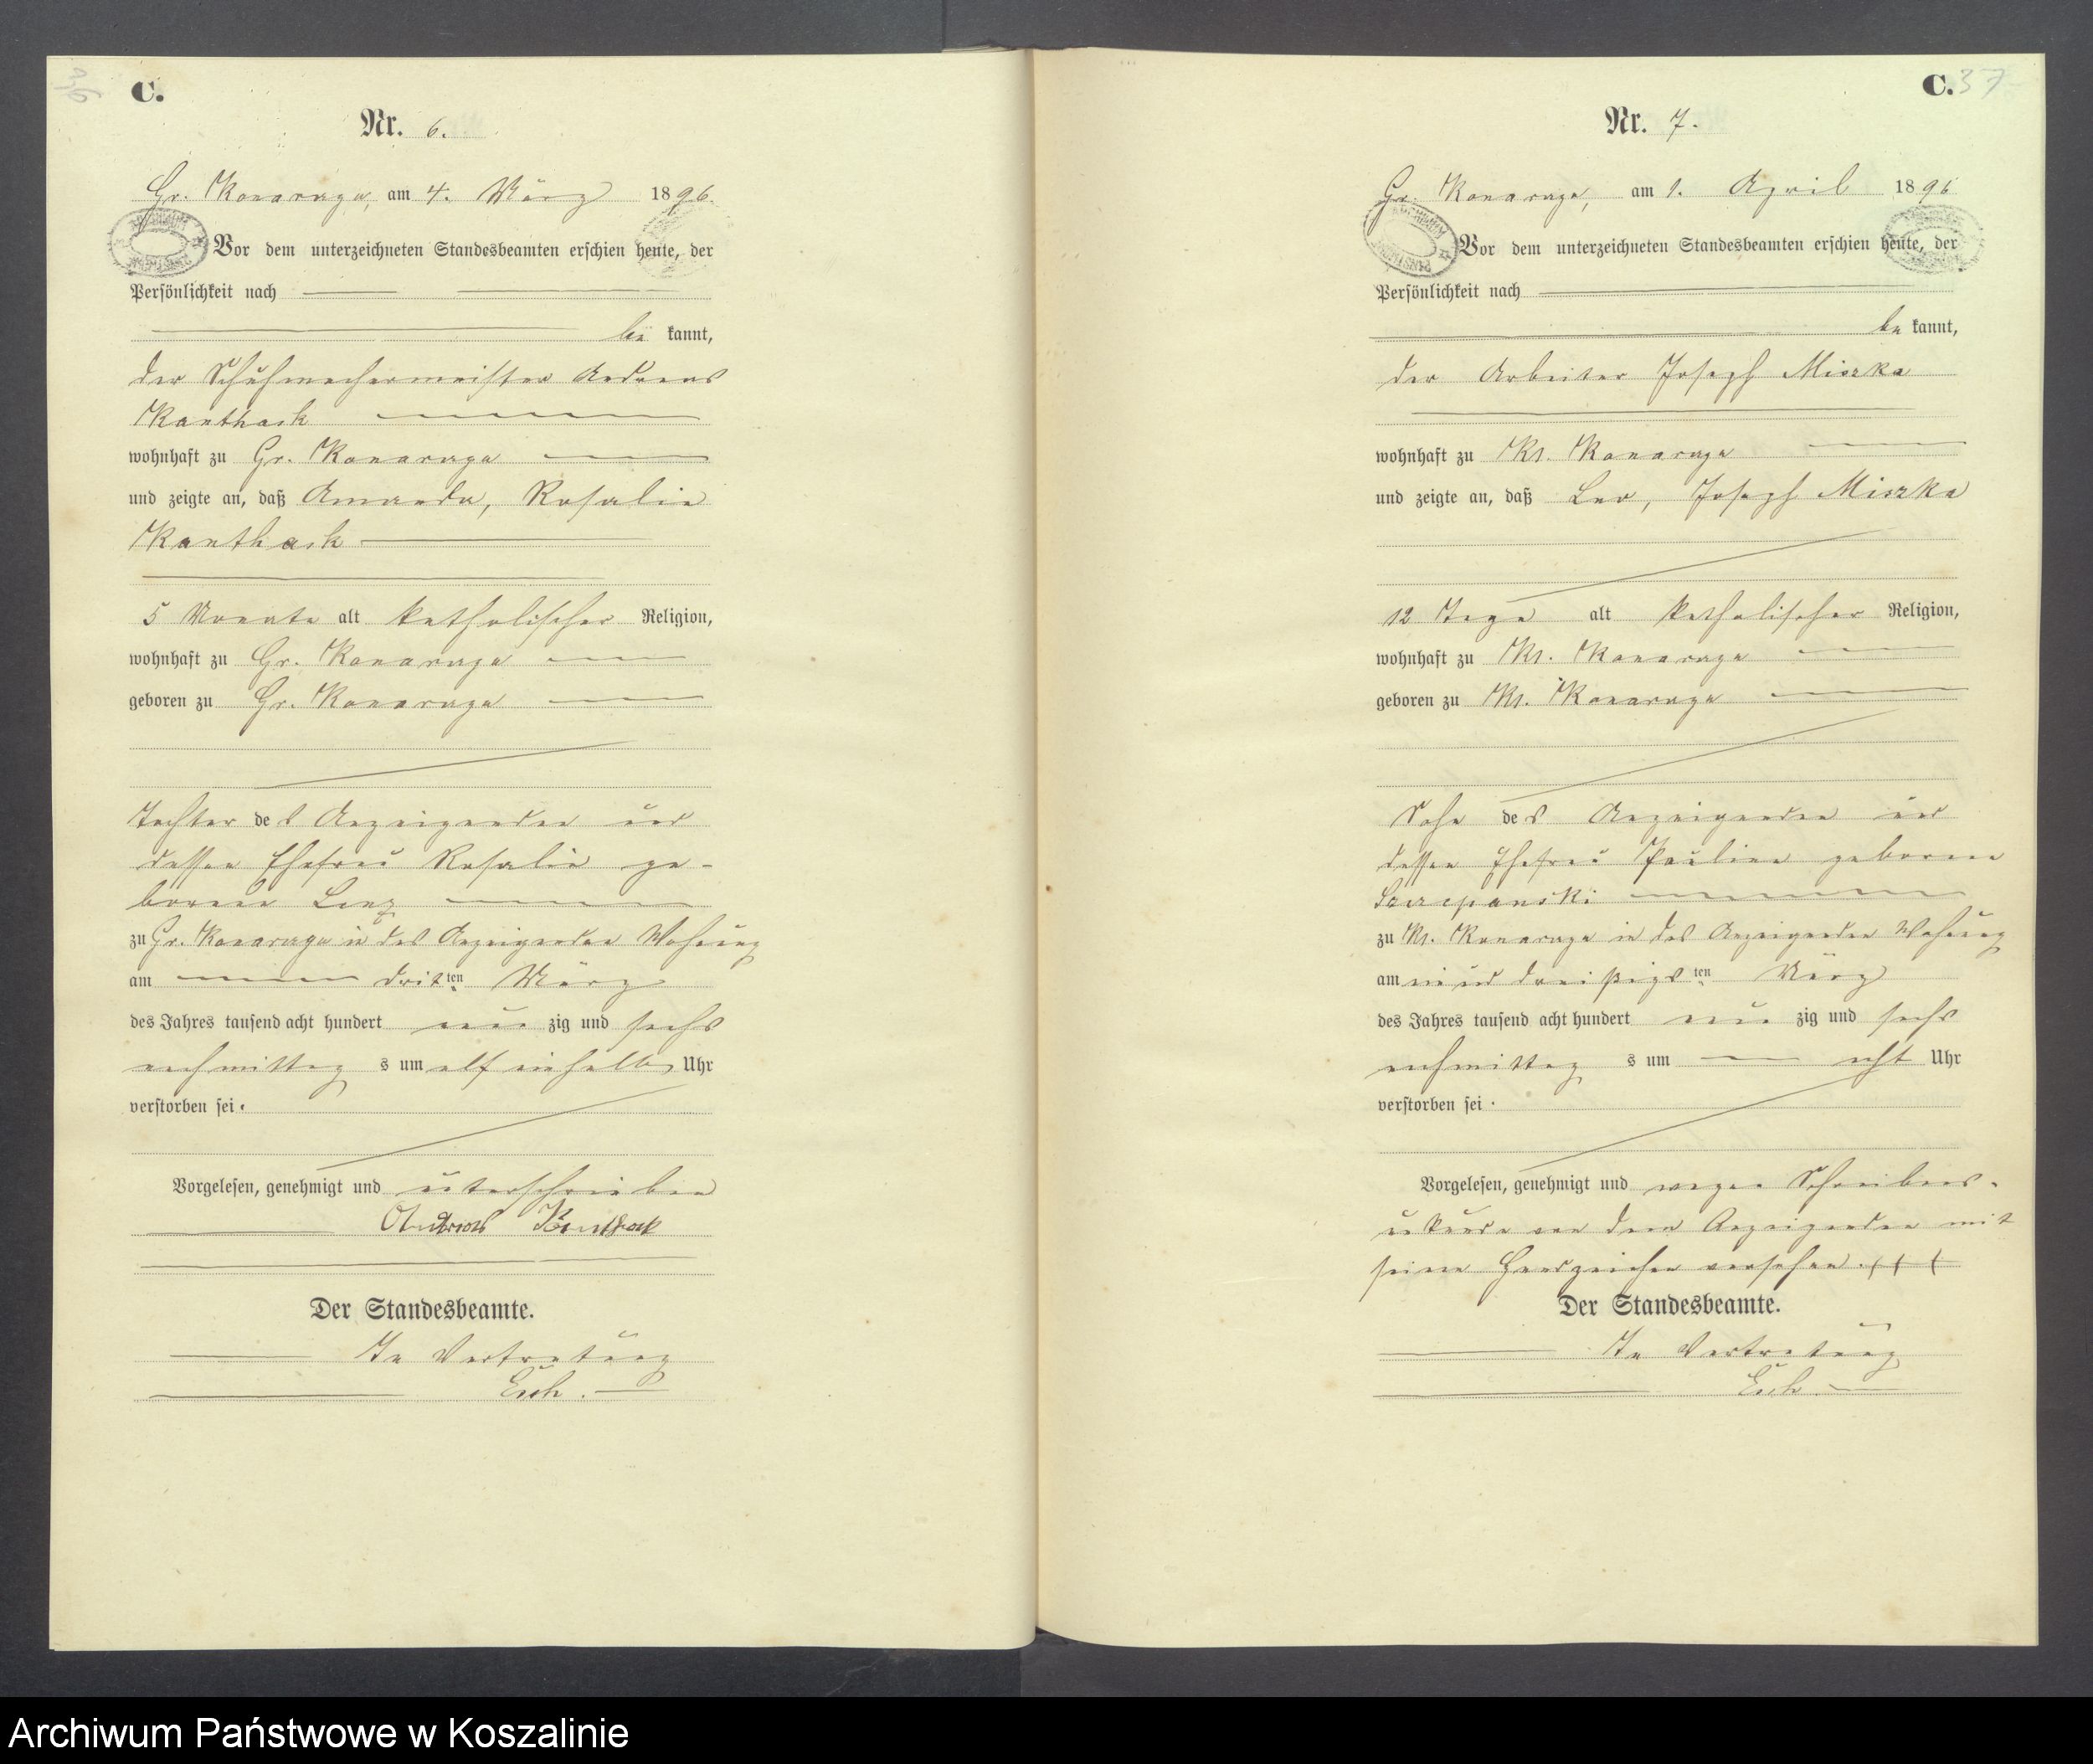 36
C.
Nr. 6.
Gr. Konarzyn, am 4. März 1896.
Vor dem unterzeichneten Standesbeamten erschien heute, der
Persönlichkeit nach
be kannt,
der Schuhmachermeister Andreas
Kanthack
wohnhaft zu Gr. Konarzyn
und zeigte an, daß Amanda, Rosalie
Kanthack
5 Monate alt katholischer Religion,
wohnhaft zu Gr. Konarzyn
geboren zu Gr. Konarzyn
Tochter des Anzeigenden und
dessen Ehefrau Rosalie ge-
borene Lenz
zu Gr. Konarzyn in des Anzeigenden Wohnung
am dritten März
des Jahres tausend acht hundert neun zig und sechs
nachmittag s um elf einhalb Uhr
verstorben sei.
Vorgelesen, genehmigt und unterschrieben
Andreas Kanthak
Der Standesbeamte.
In Vertretung
C. 37
Nr. 7.
Gr. Konarzyn, am 1. April 1896
Vor dem unterzeichneten Standesbeamten erschien heute, der
Persönlichkeit nach
be kannt,
der Arbeiter Joseph Miszka
wohnhaft zu Kl. Konarzyn
und zeigte an, daß Leo, Joseph Miszka
12 Tage alt katholischer Religion,
wohnhaft zu Kl. Konarzyn
geboren zu Kl. Konarzyn
Sohn des Anzeigenden und
dessen Ehefrau Pauline geborene
Szczepanski
zu Kl. Konarzyn in des Anzeigenden Wohnung
am ein und dreißigsten März
des Jahres tausend acht hundert neun zig und sechs
nachmittag s um acht Uhr
verstorben sei.
Vorgelesen, genehmigt und wegen Schreibens-
unkunde von dem Anzeigenden mit
seinem Handzeichen versehen. +++
Der Standesbeamte.
In Vertretung
Archiwum Państwowe w Koszalinie